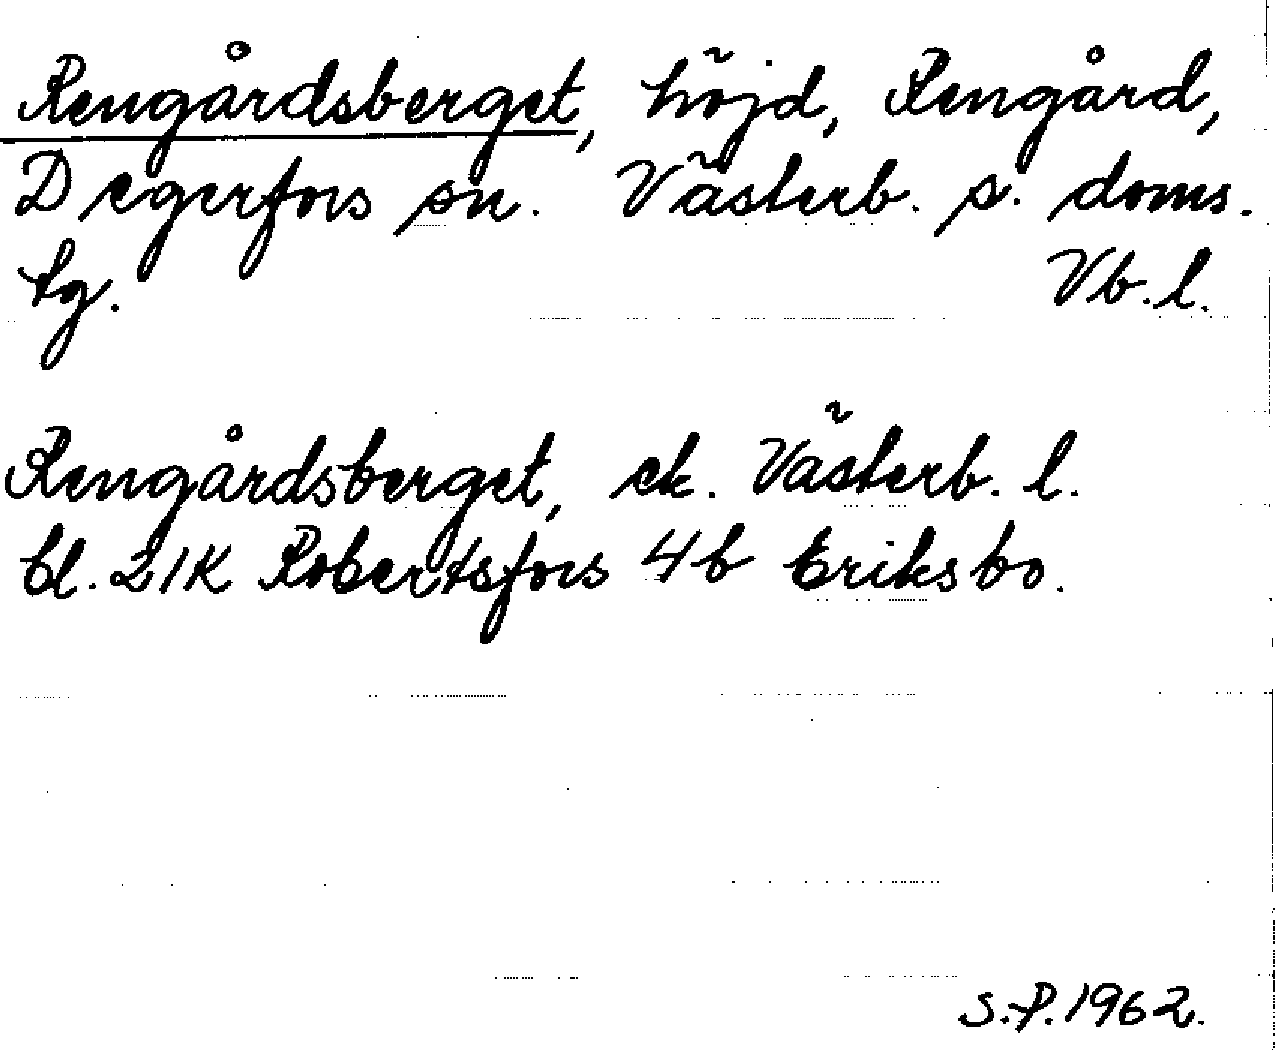 Rengårdsberget, höjd, Rengård,
Degerfors sn. Västerb. s. doms.
tg. Vb. l.
Rengårdsberget, ek. Västerb. l.
bl. 21K Robertsfors 4b Eriksbo.
S.-P. 1962.